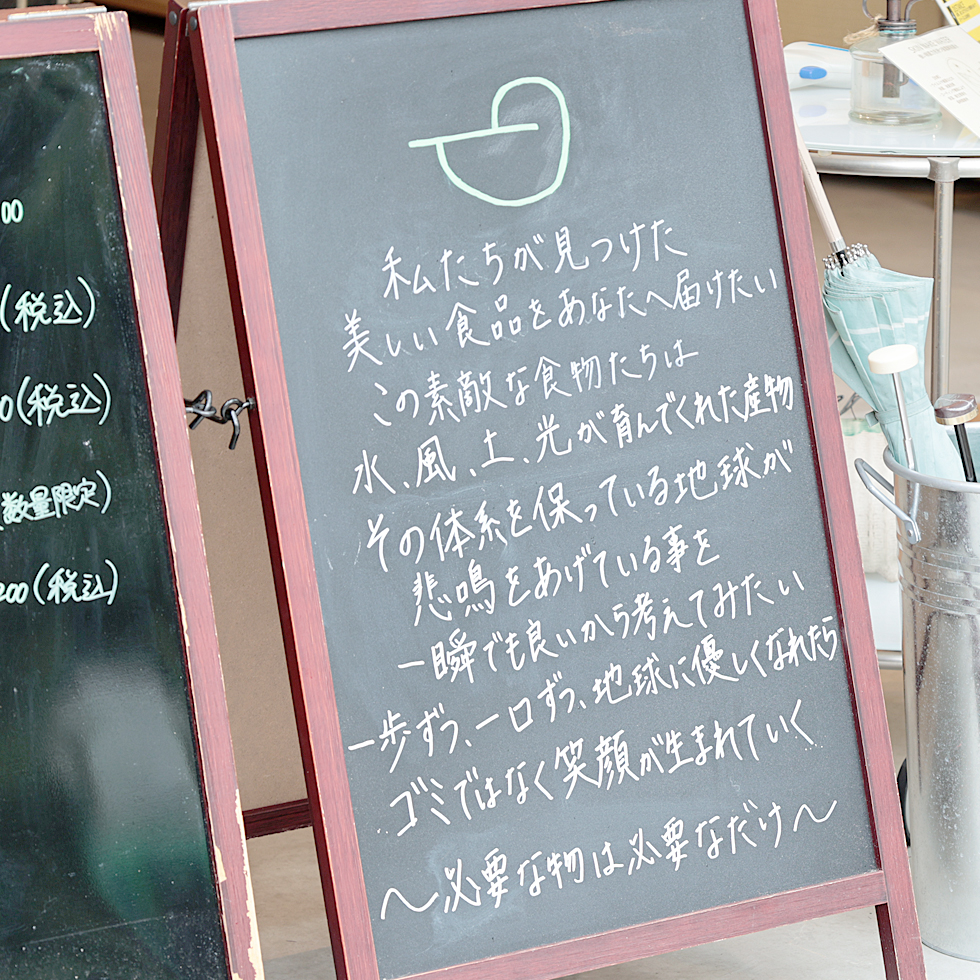 00
(税込)
0(税込)
数量限定)
200(税込)
私たちが見つけた
美しい食品をあなたへ届けたい
この素敵な食物たちは
水、風、土、光が育んでくれた産物
その体系を保っている地球が
悲鳴をあげている事を
一瞬でも良いから考えてみたい
一歩ずつ、一口ずつ、地球に優しくなれたら
ゴミではなく笑顔が生まれていく
〜必要な物は必要なだけ〜